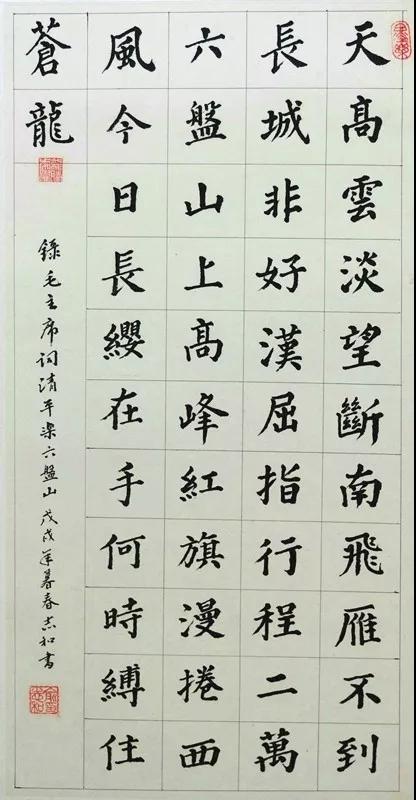 天高雲淡望斷南飛雁不到
長城非好漢屈指行程二萬
六盤山上高峰紅旗漫捲西
風今日長纓在手何時縛住
蒼龍
錄毛主席词清平樂六盤山 戊戌年暮春志和書